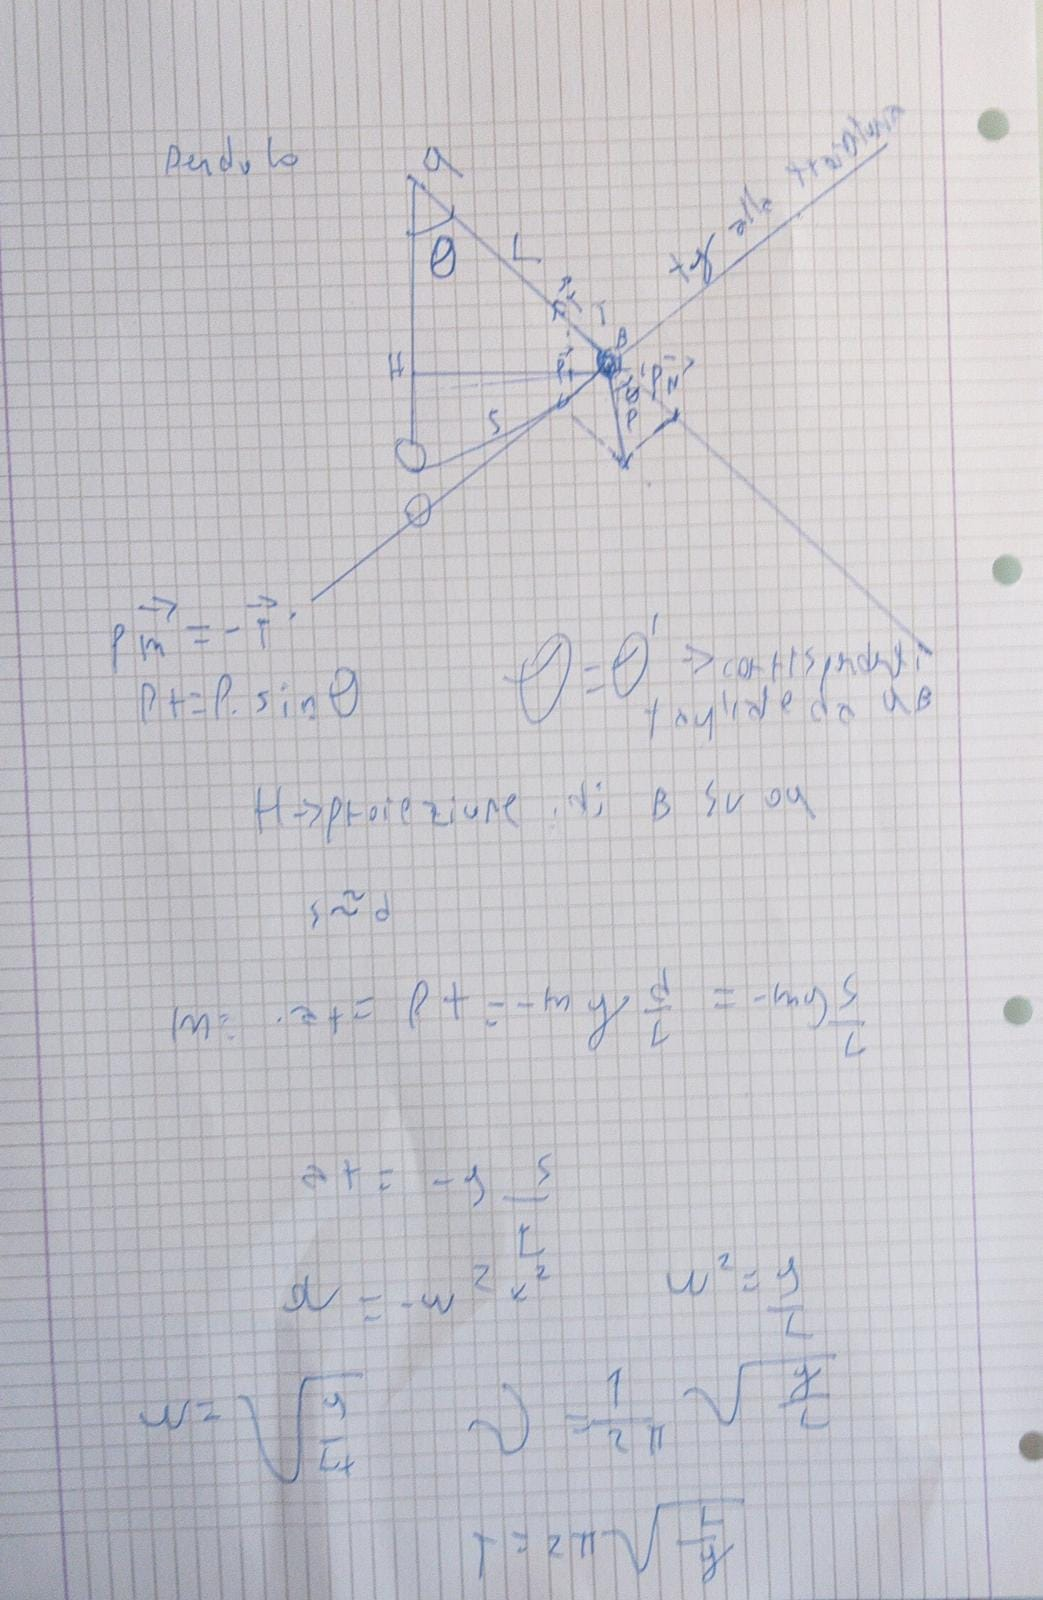 Pendulo
O
θ
L
tg alla traiettoria
T
B
H
S
P
Pn = -T
Pt = P. sin θ
θ = θ' → corrispondenti
H → proiezione di B su OA
s ≈ d
m . at = Pt = -mg d/L = -mg s/L
at = -g s/L
a = -w² x²
w² = g/L
w = √g/L
ν = 1/2π √g/L
T = 2π √L/g